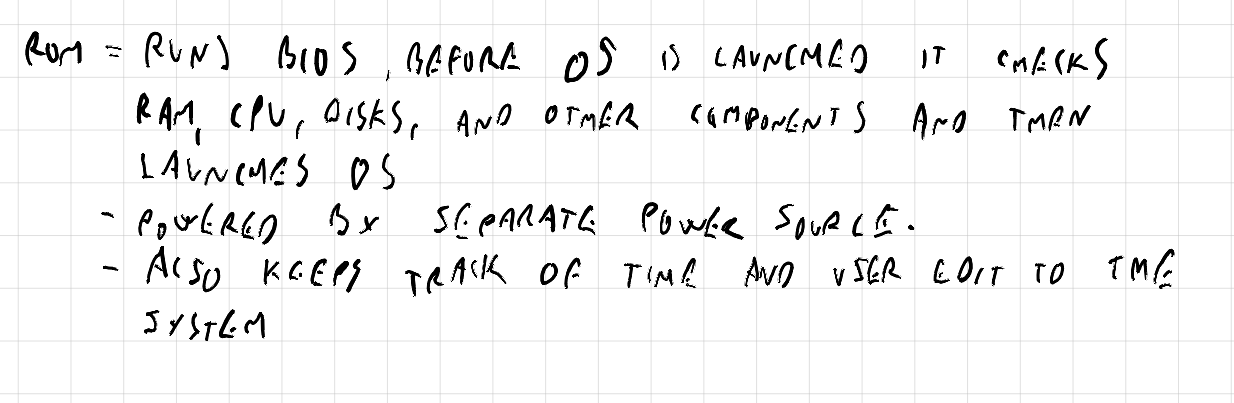 ROM = RUNS BIOS, BEFORE OS IS LAUNCHED IT CHECKS
RAM, CPU, DISKS, AND OTHER COMPONENTS AND THAN
LAUNCHES OS
- POWERED BY SEPARATE POWER SOURCE.
- ALSO KEEPS TRACK OF TIME AND USER EDIT TO THE
SYSTEM